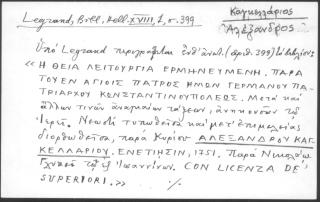 Καγκελλάριος
Ἀλέξανδρος
Legrand, Bibl. Hell. XVIII, 1, σ. 399
Ὑπὸ Legrand περιγράφεται ἐνθ' ἀνωτ. (ἀριθ. 399) τὸ βιβλίον:
«Η ΘΕΙΑ ΛΕΙΤΟΥΡΓΙΑ ΕΡΜΗΝΕΥΜΕΝΗ, ΠΑΡΑ
ΤΟΥ ΕΝ ΑΓΙΟΙΣ ΠΑΤΡΟΣ ΗΜΩΝ ΓΕΡΜΑΝΟΥ ΠΑ-
ΤΡΙΑΡΧΟΥ ΚΩΝΣΤΑΝΤΙΝΟΥΠΟΛΕΩΣ. Μετὰ καὶ
ἄλλων τινῶν ἀναγκαίων τάξεων, ἀνηκουσῶν τοῖς
Ἱερεῦσι. Νεωστὶ τυπωθεῖσα καὶ μετ' ἐπιμελείας
διορθωθεῖσα, παρὰ Κυρίου ΑΛΕΞΑΝΔΡΟΥ ΚΑΓ-
ΚΕΛΛΑΡΙΟΥ. ΕΝΕΤΙΗΣΙΝ, 1751. Παρὰ Νικολάῳ
Γλυκεῖ τῷ ἐξ Ἰωαννίνων. CON LICENZA DE'
SUPERIORI.»